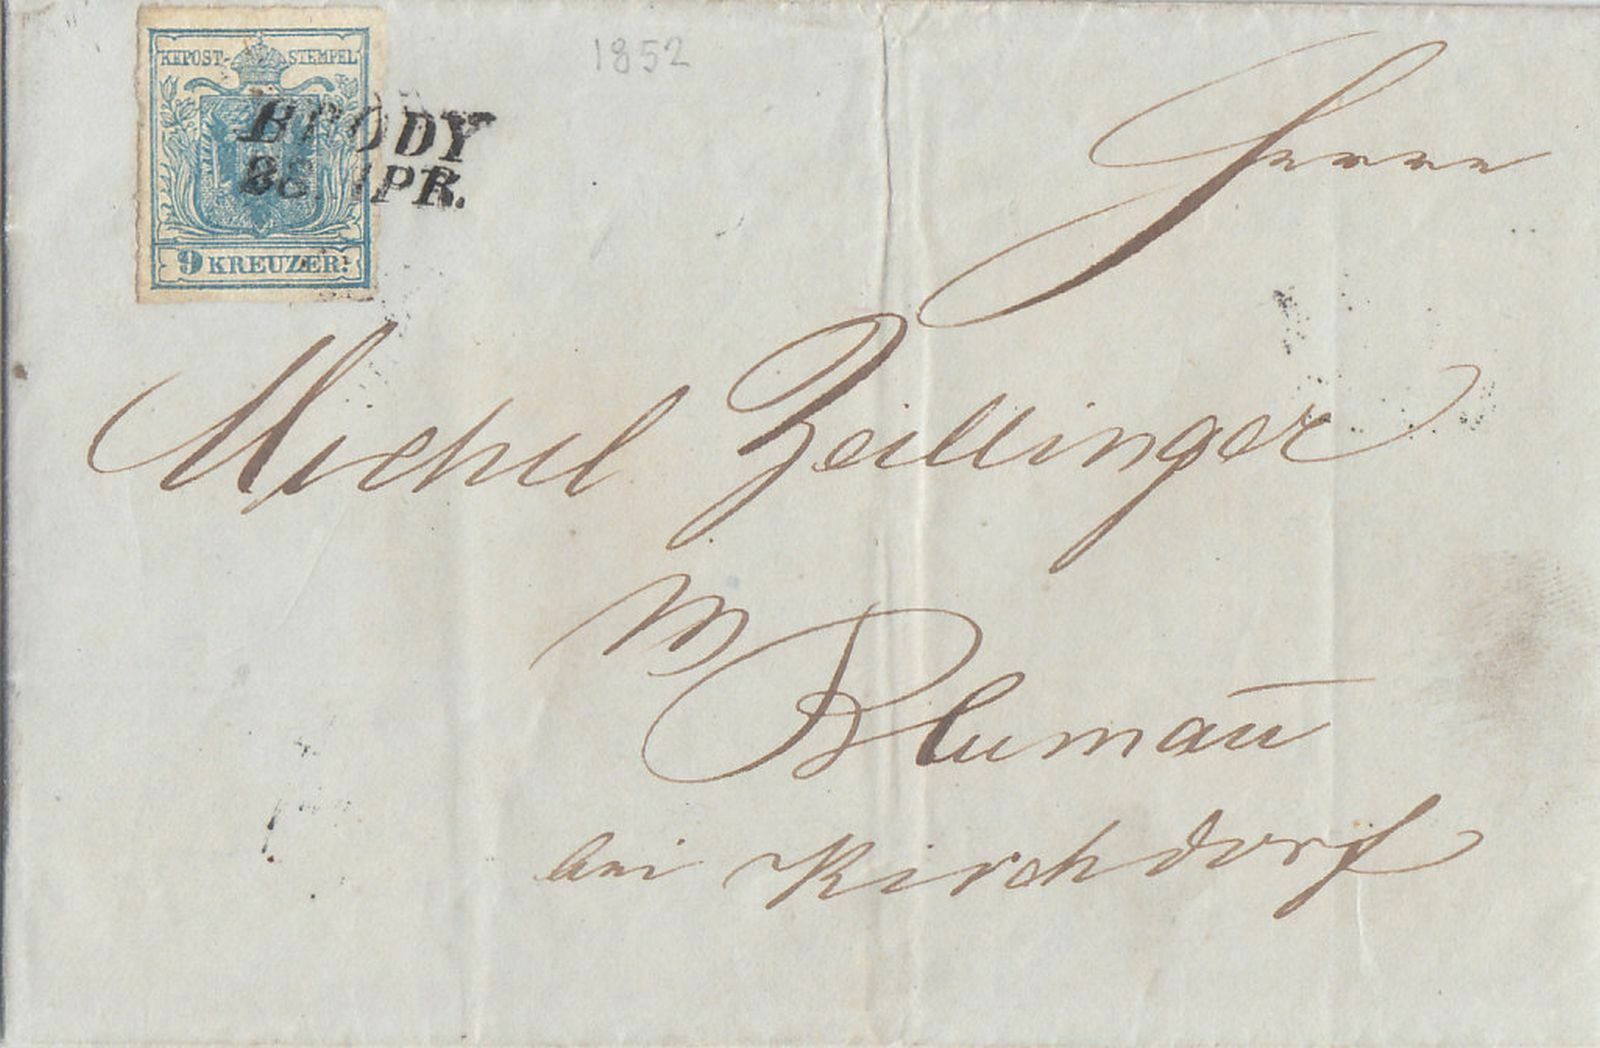 KKPOST-STEMPEL
9 KREUZER.
BRODY
APR.
1852
Herrn
Michel Zeillinger
in
Blumau
bei Kirchdorf